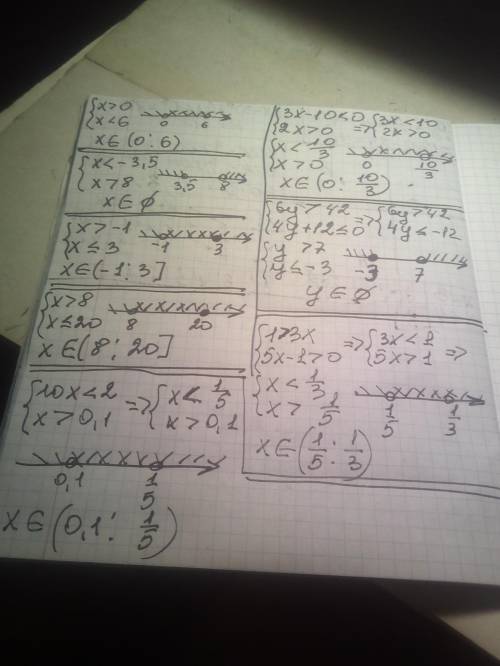 {x>0
{x<6
0 6
x∈(0; 6)
{x<-3,5
{x>8
3,5 8
x∈∅
{x>-1
{x≤3
-1 3
x∈(-1; 3]
{x>8
{x≤20
8 20
x∈(8; 20]
{10x<2 => {x<1/5
{x>0,1 {x>0,1
0,1 1/5
x∈(0,1; 1/5)
{3x-10<0 => {3x<10
{2x>0 {2x>0
{x<10/3
{x>0
0 10/3
x∈(0; 10/3)
{6y>42 => {6y>42
{4y+12≤0 {4y≤-12
{y>7
{y≤-3
-3 7
y∈∅
{1>3x => {3x<1
{5x-1>0 {5x>1 =>
{x<1/3
{x>1/5
1/5 1/3
x∈(1/5; 1/3)